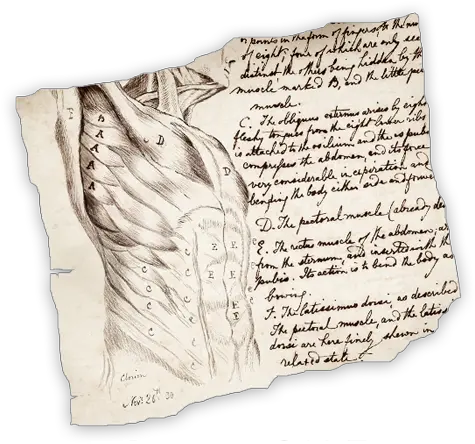 or points in the form of fingers to the
of eight, four of which are only
distinct the others being hidden by the
muscle marked B, and the little
muscle.
C. The obliquus externus arises by eight
fleshy tongues from the eight lower ribs
is attached to the os ilium and the os pubis
compresses the abdomen and its force
very considerable in expiration, and
bending the body either side and
D. The pectoral muscle (already
E. The rectus muscle of the abdomen,
from the sternum, and inserted into the
pubis. Its action is to bend the body as
bowing.
F. The latissimus dorsi, as described
The pectoral muscle, and the
dorsi are here finely shewn in
relaxed state.
B
A
A
A
A
D
D
E
E
E
E
E
E
C
C
C
C
C
C
Nov. 26th 30